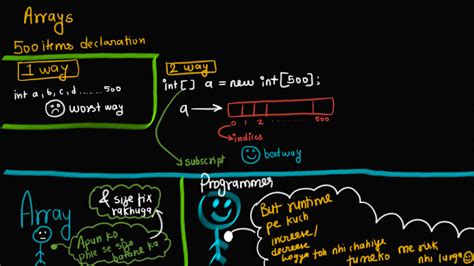 Arrays
500 items declaration
1 way
int a, b, c, d ....... 500
worst way
2 way
int[] a = new int[500];
a
0 1 2 ...... 500
indices
subscript
best way
Array
& size fix
rakhuga
Apun ko
phle se size
batane ka
Programmer
But runtime
pe kuch
increase/
decrease
hogya toh nhi chahiye
tumeko me risk
nhi lunga